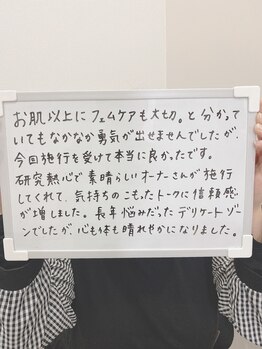 お肌以上にフェムケアも大切。と分かって
いてもなかなか勇気が出せませんでしたが、
今回施行を受けて本当に良かったです。
研究熱心で素晴らしいオーナーさんが施行
してくれて、気持ちのこもったトークに信頼感
が増しました。長年悩みだったデリケートゾー
ンでしたが心も体も晴れやかになりました。